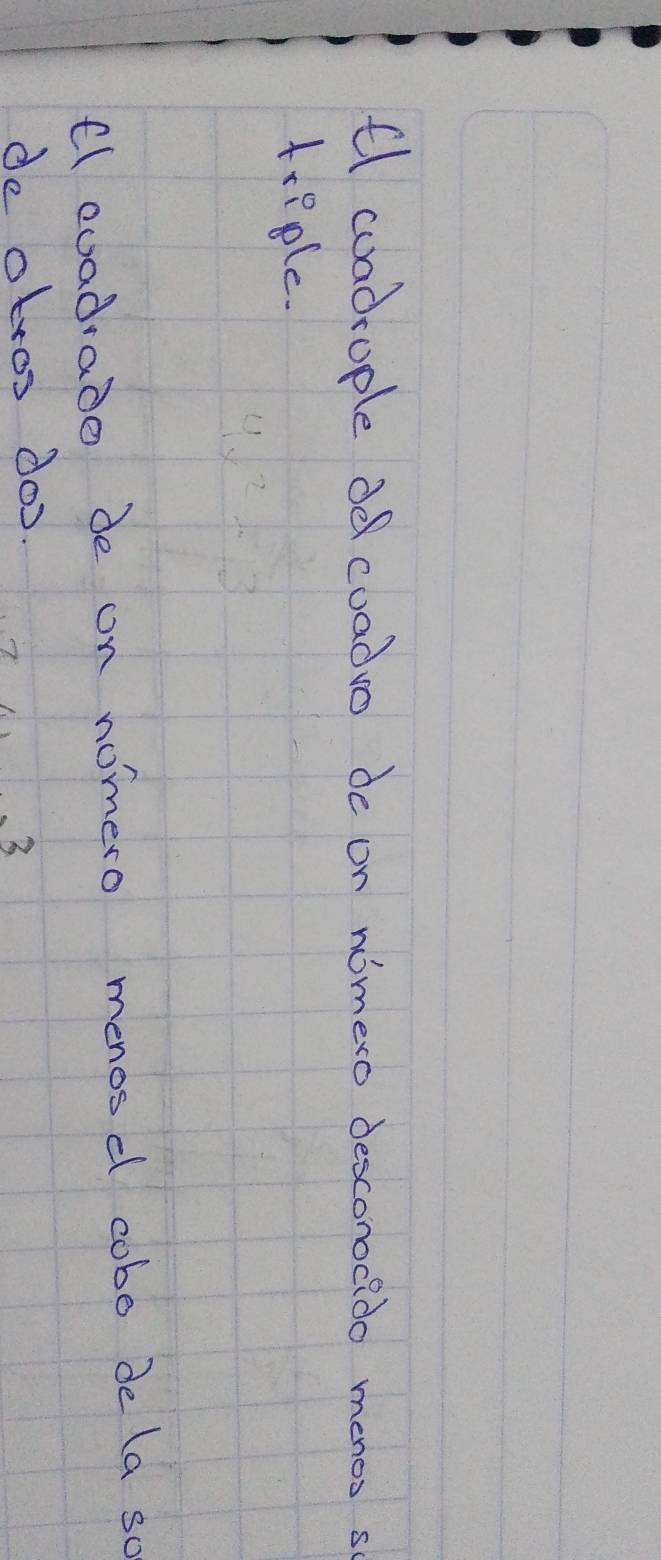 El cuadruple del cuadro de un número desconocido menos
triple.
El cuadrado de un número menos el cubo de la
de otros dos.